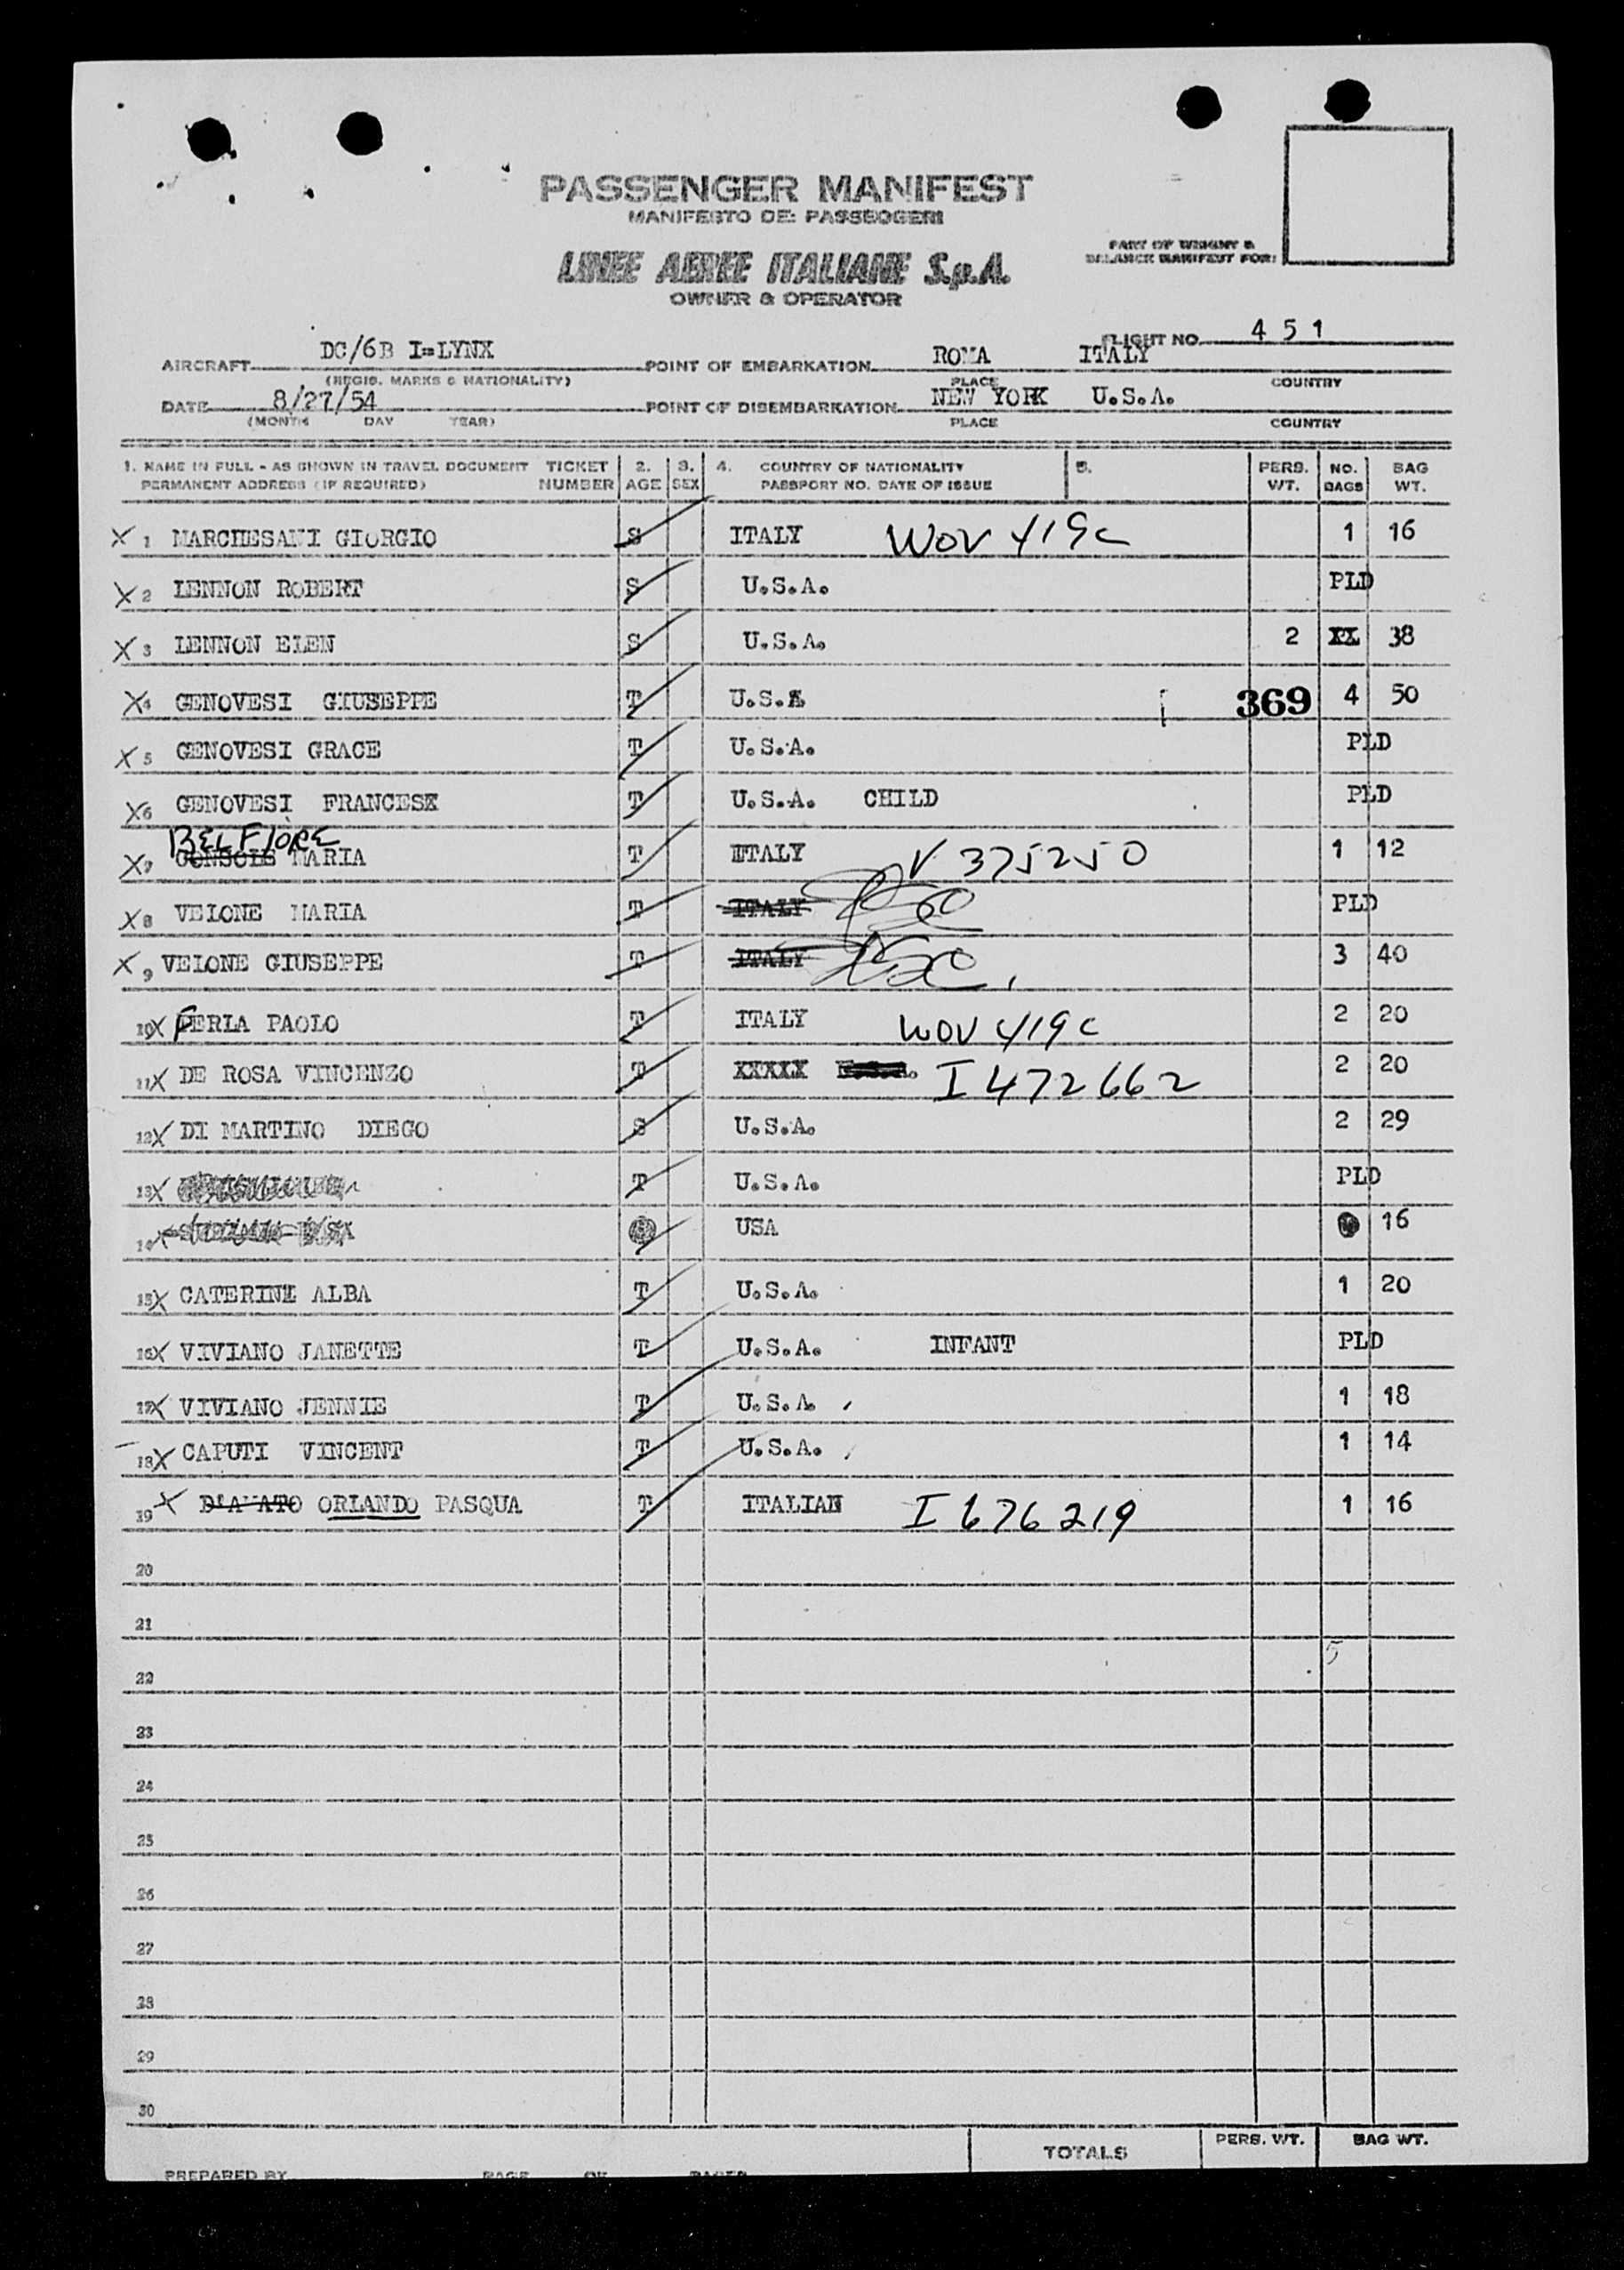 PASSENGER MANIFEST
MANIFESTO DEI PASSEGGERI
LINEE AEREE ITALIANE S.p.A.
OWNER & OPERATOR
PART OF WEIGHT &
BALANCE MANIFEST FOR:
FLIGHT NO. 451
AIRCRAFT DC/6B I=LYNX POINT OF EMBARKATION ROMA ITALY
(REGIS. MARKS & NATIONALITY) PLACE COUNTRY
DATE 8/27/54 POINT OF DISEMBARKATION NEW YORK U.S.A.
(MONTH DAY YEAR) PLACE COUNTRY
1. NAME IN FULL - AS SHOWN IN TRAVEL DOCUMENT TICKET 2. 3. 4. COUNTRY OF NATIONALITY 5. PERS. NO. BAG
PERMANENT ADDRESS (IF REQUIRED) NUMBER AGE SEX PASSPORT NO. DATE OF ISSUE WT. BAGS WT.
X 1 MARCHESANI GIORGIO S ITALY WOV 419c 1 16
X 2 LENNON ROBERT S U.S.A. PLD
X 3 LENNON ELEN S U.S.A. 2 XX 38
X 4 GENOVESI GIUSEPPE T U.S.A 369 4 50
X 5 GENOVESI GRACE T U.S.A. PLD
X 6 GENOVESI FRANCESX T U.S.A. CHILD PLD
BELFIORE
X 7 CONSOLE MARIA T ITALY V 375250 1 12
X 8 VEIONE MARIA T ITALY PLD
X 9 VEIONE GIUSEPPE T ITALY 3 40
10 X FERLA PAOLO T ITALY WOV 419c 2 20
11 X DE ROSA VINCENZO T XXXXX U.S.A. I 472662 2 20
12 X DI MARTINO DIEGO S U.S.A. 2 29
13 X T U.S.A. PLD
14 X USA 16
15 X CATERINI ALBA T U.S.A. 1 20
16 X VIVIANO JANETTE T U.S.A. INFANT PLD
17 X VIVIANO JENNIE T U.S.A. 1 18
18 X CAPUTI VINCENT T U.S.A. 1 14
19 X D'AMATO ORLANDO PASQUA T ITALIAN I 676219 1 16
20
21
22
23
24
25
26
27
28
29
30
TOTALS PERS. WT. BAG WT.
PREPARED BY PAGE OF PAGES